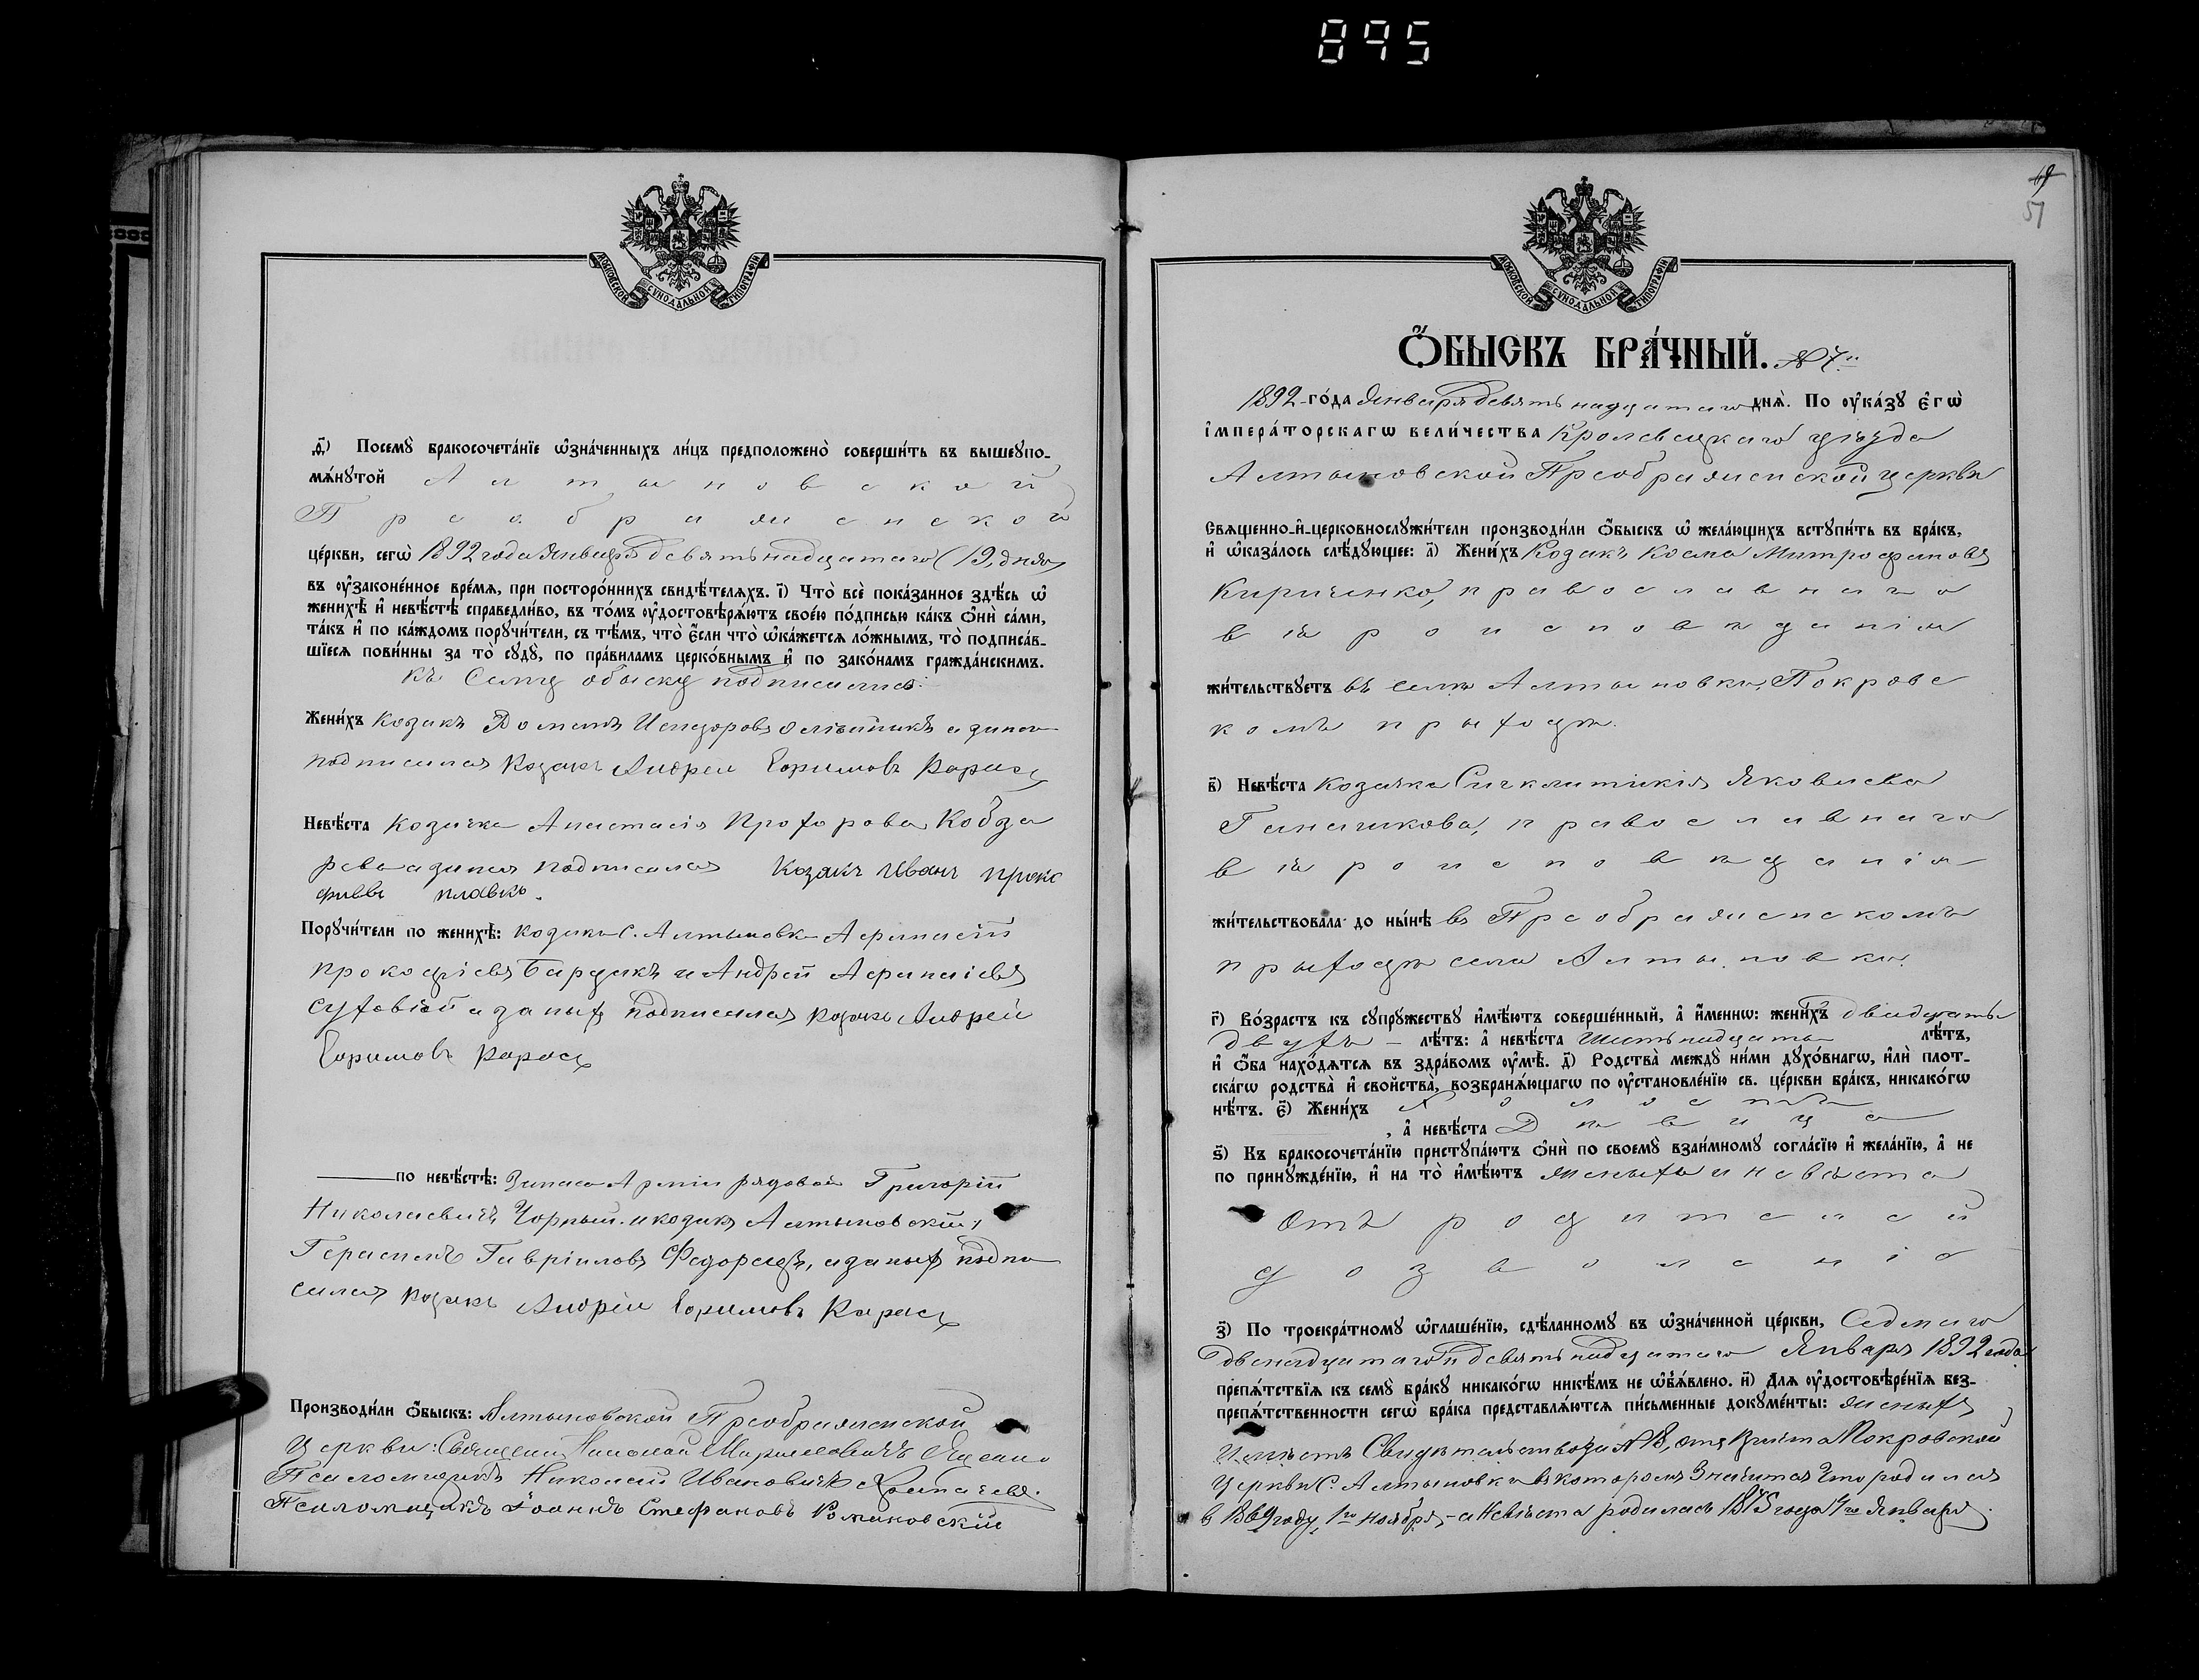 895
МОСКОВСКОЙ СУНОДАЛЬНОЙ ТИПОГРАФIИ
ѳ҃) Посемꙋ̀ бракосочета́нїе ѡ҆зна́ченныхъ ли́цъ предположено̀ соверши́ть въ вышеꙋпо-
мѧ́нꙋтой Алтыновской
Преображенской
це́ркви, сегѡ̀ 1892 года Января девятьнадцатаго (19) дня
въ ᲂу҆законе́нное вре́мѧ, при посторо́ннихъ свидѣ́телѧхъ. і҃) Что̀ всѐ пока́занное здѣ́сь ѡ҆
женихѣ̀ и҆ невѣ́стѣ справедли́во, въ то́мъ ᲂу҆достовѣрѧ́ютъ свое́ю по́дписью ка́къ ѻ҆нѝ са́ми,
та́къ и҆ по ка́ждомъ порꙋчи́тели, съ тѣ́мъ, что̀ є҆́сли что̀ ѡ҆ка́жетсѧ ло́жнымъ, то̀ подписа́в-
шїесѧ пови́нны за то̀ сꙋдꙋ̀, по пра́виламъ церко́внымъ и҆ по зако́намъ гражда́нскимъ.
Къ Сему обыску подписались:
Жени́хъ Козакъ Исидоровъ а за него
подписался Козакъ Андрей Ефимовъ Карась
Невѣ́ста Козачка Анастасія Прохорова Кобза
рева а за нея подписался Козакъ Иванъ Проко
фиевъ Плавко.
Порꙋчи́тели по женихѣ̀: Козаки С. Алтыновки Афанасій
Прокофіевъ Бардакъ и Андрей Афанасіевъ
Суховій а за ныхъ подписался Козакъ Андрей
Ефимовъ Карась
по невѣ́стѣ: Запаса Арміи рядовой Григорій
Николаевичъ Чорный и козакъ Алтыновскій
Герасимъ Гавріиловъ Федорецъ, а за ныхъ подпи
сался Козакъ Андрей Ефимовъ Карась
Производи́ли ѻ҆́быскъ: Алтыновской Преображенской
Церкви: Священн. Николай
Псаломщикъ Николай Ивановичъ
Псаломщикъ Іоаннъ Стефановъ Романовскій
51
МОСКОВСКОЙ СУНОДАЛЬНОЙ ТИПОГРАФIИ
Ѻ҆́БЫСКЪ БРА́ЧНЫЙ. № 7й
1892 го́да Января девятьнадцатаго днѧ̀. По ᲂу҆ка́зꙋ є҆гѡ̀
і҆мпера́торскагѡ вели́чества Кролевецкаго уѣзда
Алтыновской Преображенской церкви
Свѧще́нно-и҆-церковнослꙋжи́тели производи́ли ѻ҆́быскъ ѡ҆ жела́ющихъ встꙋпи́ть въ бра́къ,
и҆ ѡ҆каза́лось слѣ́дꙋющее: а҃) Жени́хъ Козакъ Косма Митрофановъ
Кириченко, православнаго
вѣроисповѣданія
жи́тельствꙋетъ въ селѣ Алтыновки, Покровс
комъ прыходѣ.
в҃) Невѣ́ста Козачка Синклитикія Яковлева
Ганачикова, православнаго
вѣроисповѣданія
жи́тельствовала до ны́нѣ въ Преображенскомъ
прыходѣ села Алтыновки.
г҃) Во́зрастъ къ сꙋпрꙋ́жествꙋ и҆мѣ́ютъ соверше́нный, а҆ и҆́меннѡ: жени́хъ двадцать
двухъ — лѣ́тъ: а҆ невѣ́ста Шестьнадцать лѣ́тъ,
и҆ ѻ҆́ба нахо́дѧтсѧ въ здра́вомъ ᲂу҆мѣ̀. д҃) Родства̀ междꙋ̀ ни́ми дꙋхо́внагѡ, и҆лѝ плот-
ска́гѡ родства̀ и҆ сво́йства̀, возбранѧ́ющагѡ по ᲂу҆становле́нїю св. це́ркви бра́къ, никако́гѡ
нѣ́тъ. є҃) Жени́хъ Холостъ
, а҆ невѣ́ста Дѣвица
ѕ҃) Къ бракосочета́нїю пристꙋпа́ютъ ѻ҆нѝ по своемꙋ̀ взаи́мномꙋ согла́сїю и҆ жела́нїю, а҆ не
по принꙋжде́нїю, и҆ на то̀ и҆мѣ́ютъ женыхъ и невѣста
Отъ родителей
дозволеніе
з҃) По троекра́тномꙋ ѡ҆глаше́нїю, сдѣ́ланномꙋ въ ѡ҆зна́ченной це́ркви, Седмаго
двенадцатаго и девятьнадцатаго Января 1892 года
препѧ́тствїѧ къ семꙋ̀ бра́кꙋ никако́гѡ никѣ́мъ не ѡ҆б̾ѧ́влено. и҃) Длѧ ᲂу҆достовѣре́нїѧ без-
препѧ́тственности сегѡ̀ бра́ка представлѧ́ютсѧ пи́сьменные докꙋме́нты: женыхъ
Имѣетъ Свидѣтельство за № 18, отъ Причта Покровской
Церкви С. Алтыновки въ которомъ Значится Что родился
в 1869 году, 1го ноября, а Невѣста родилась 1875 года 4го Января.